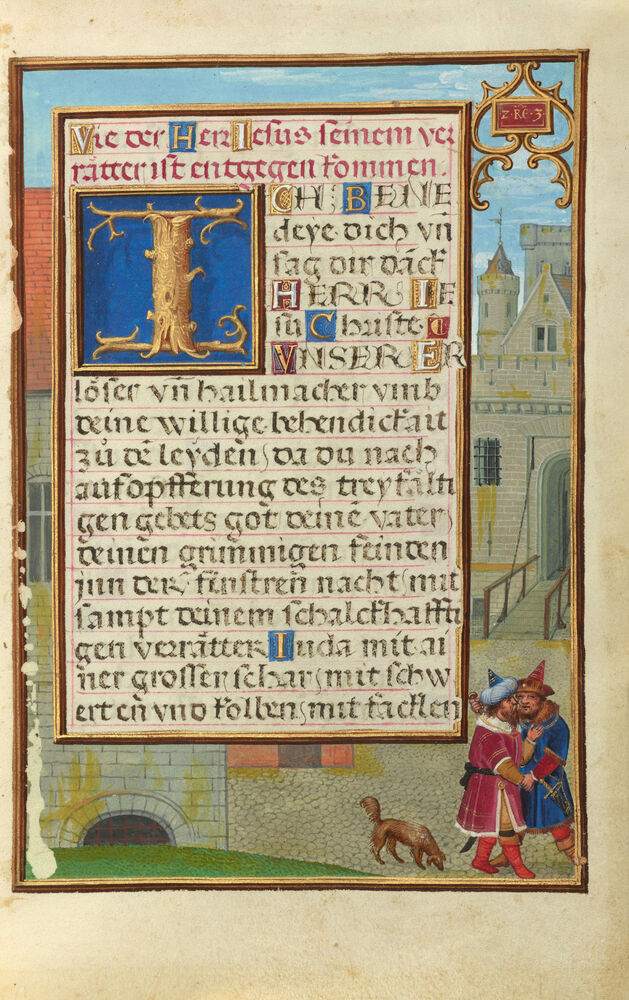 2·RE·3·
Vie der Herr Iesus seinem ver
rätter ist entgegen kommen.
ICH BENE
deye dich vn̄
sag dir dāck
HERR IE
su Christe
VNSER ER
löser vn̄ hailmacher vmb
deine willige behendickait
zu dē leyden, da du nach
aufopfferung des treyfälti
gen gebets got deinē vater,
deinen̄ grimmigen feinden
inn der finstren̄ nacht, mit
sampt deinem schalckhaffti
gen verrätter Iuda mit ai
ner grosser schar, mit schw
erten̄ vnd kolben, mit facklen